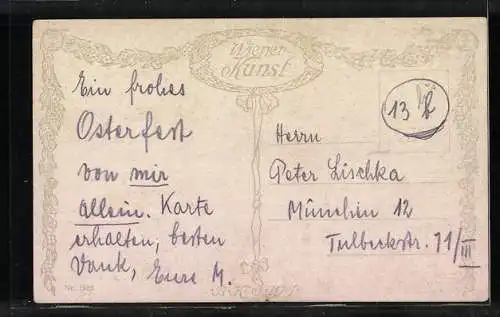 Wiener
Kunst
13
Ein frohes
Osterfest
von mir
allein. Karte
erhalten, besten
Dank, Eure M.
Herrn
Peter Lischka
München 12
Tulbeckstr. 71/III